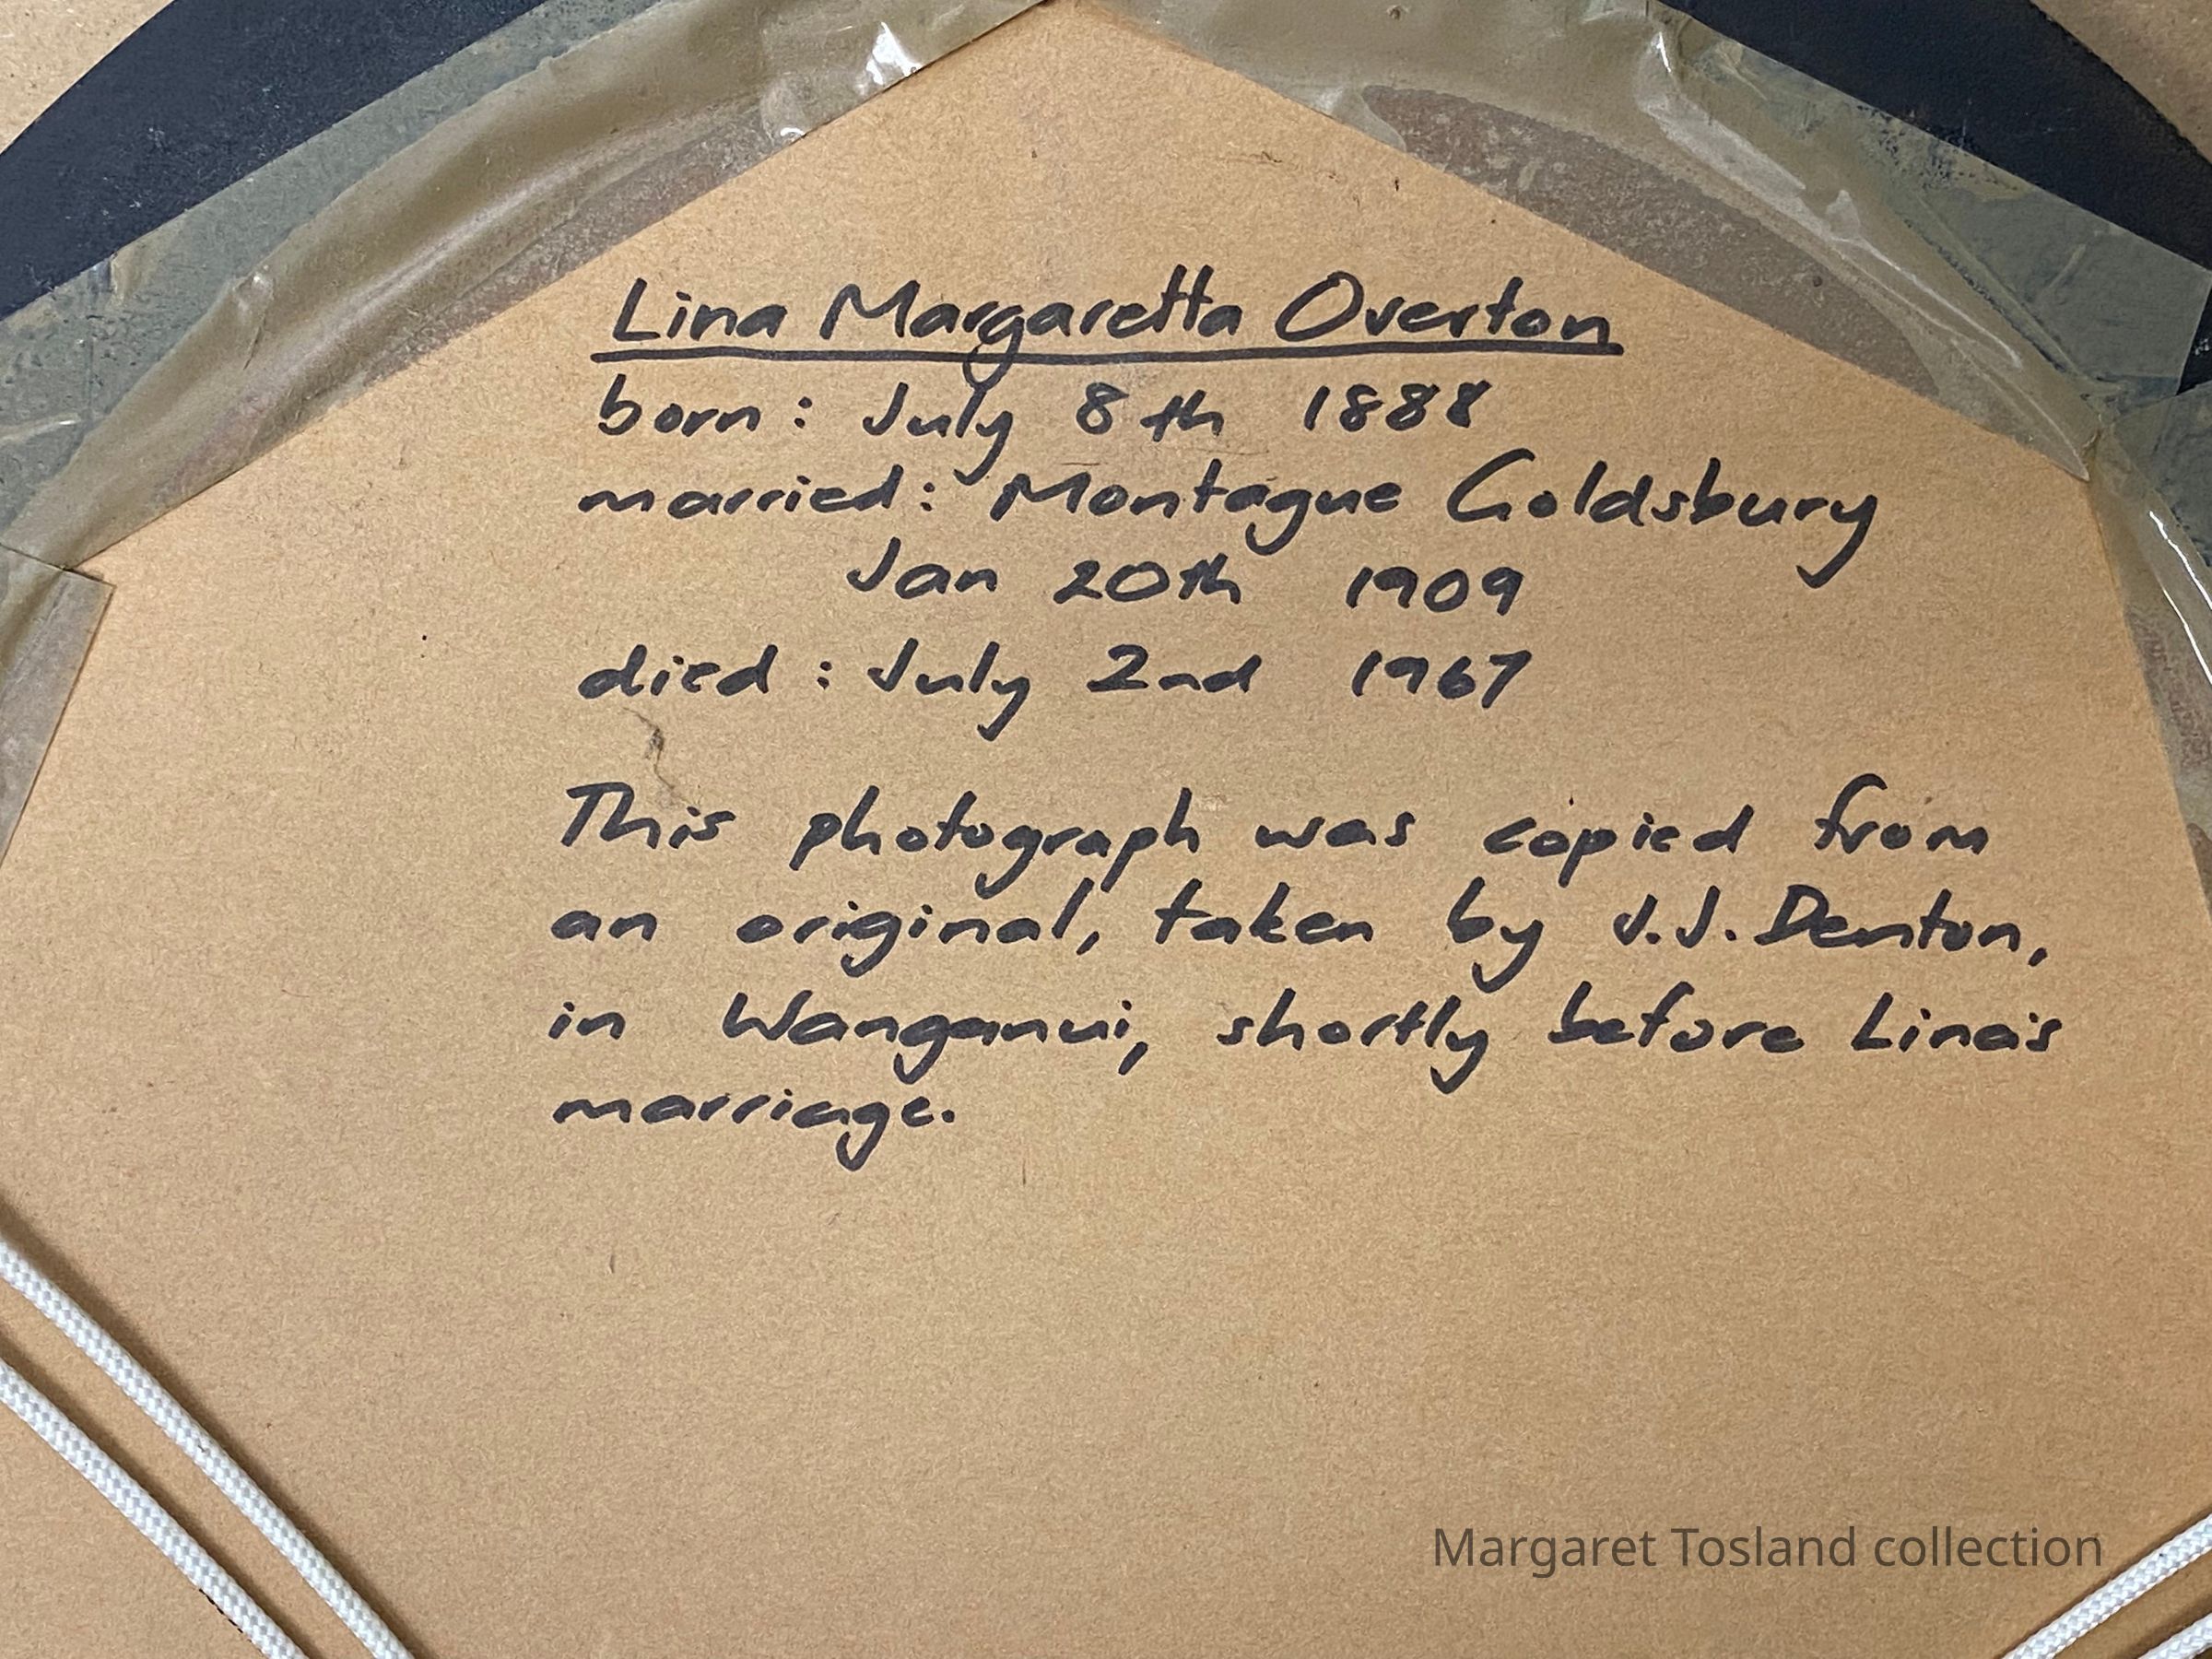 Lina Margaretta Overton
born: July 8th 1888
married: Montague Goldsbury
Jan 20th 1909
died: July 2nd 1967
This photograph was copied from
an original, taken by J.J. Denton,
in Wanganui, shortly before Lina's
marriage.
Margaret Tosland collection